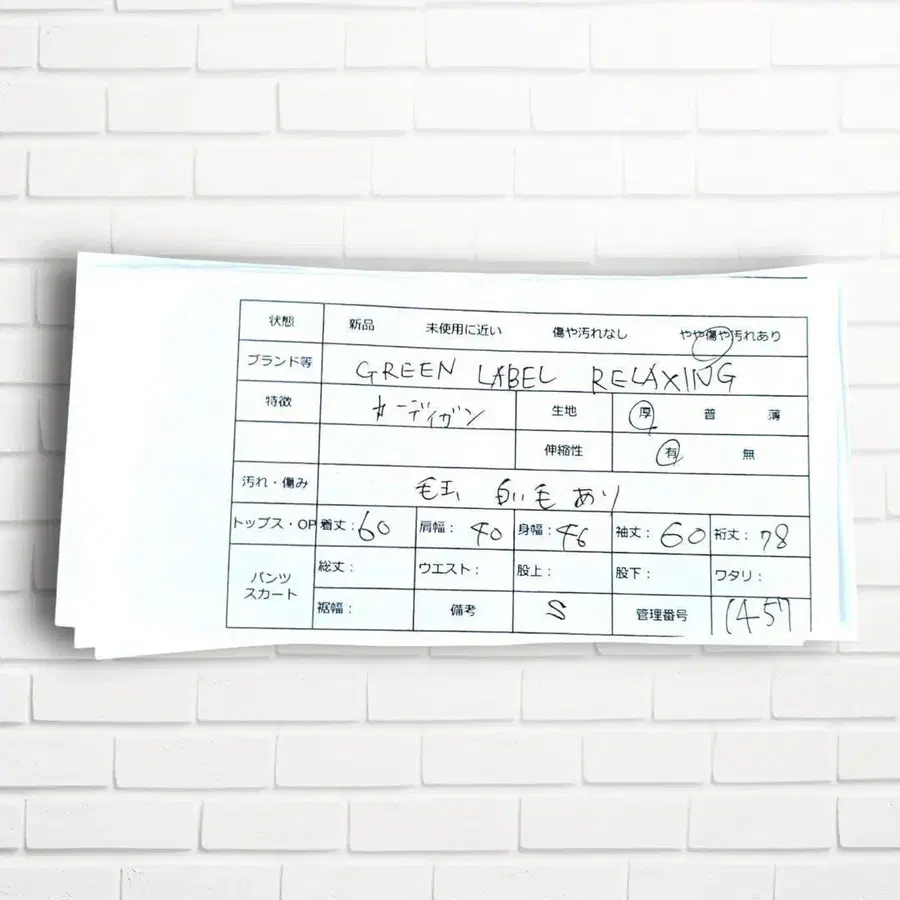 状態 新品 未使用に近い 傷や汚れなし やや傷や汚れあり
ブランド等 GREEN LABEL RELAXING
特徴 カーディガン 生地 厚 普 薄
伸縮性 有 無
汚れ・傷み 毛玉、白い毛あり
トップス・OP 着丈：60 肩幅：40 身幅：46 袖丈：60 裄丈：78
パンツ 総丈： ウエスト： 股上： 股下： ワタリ：
スカート 裾幅： 備考 S 管理番号 1457